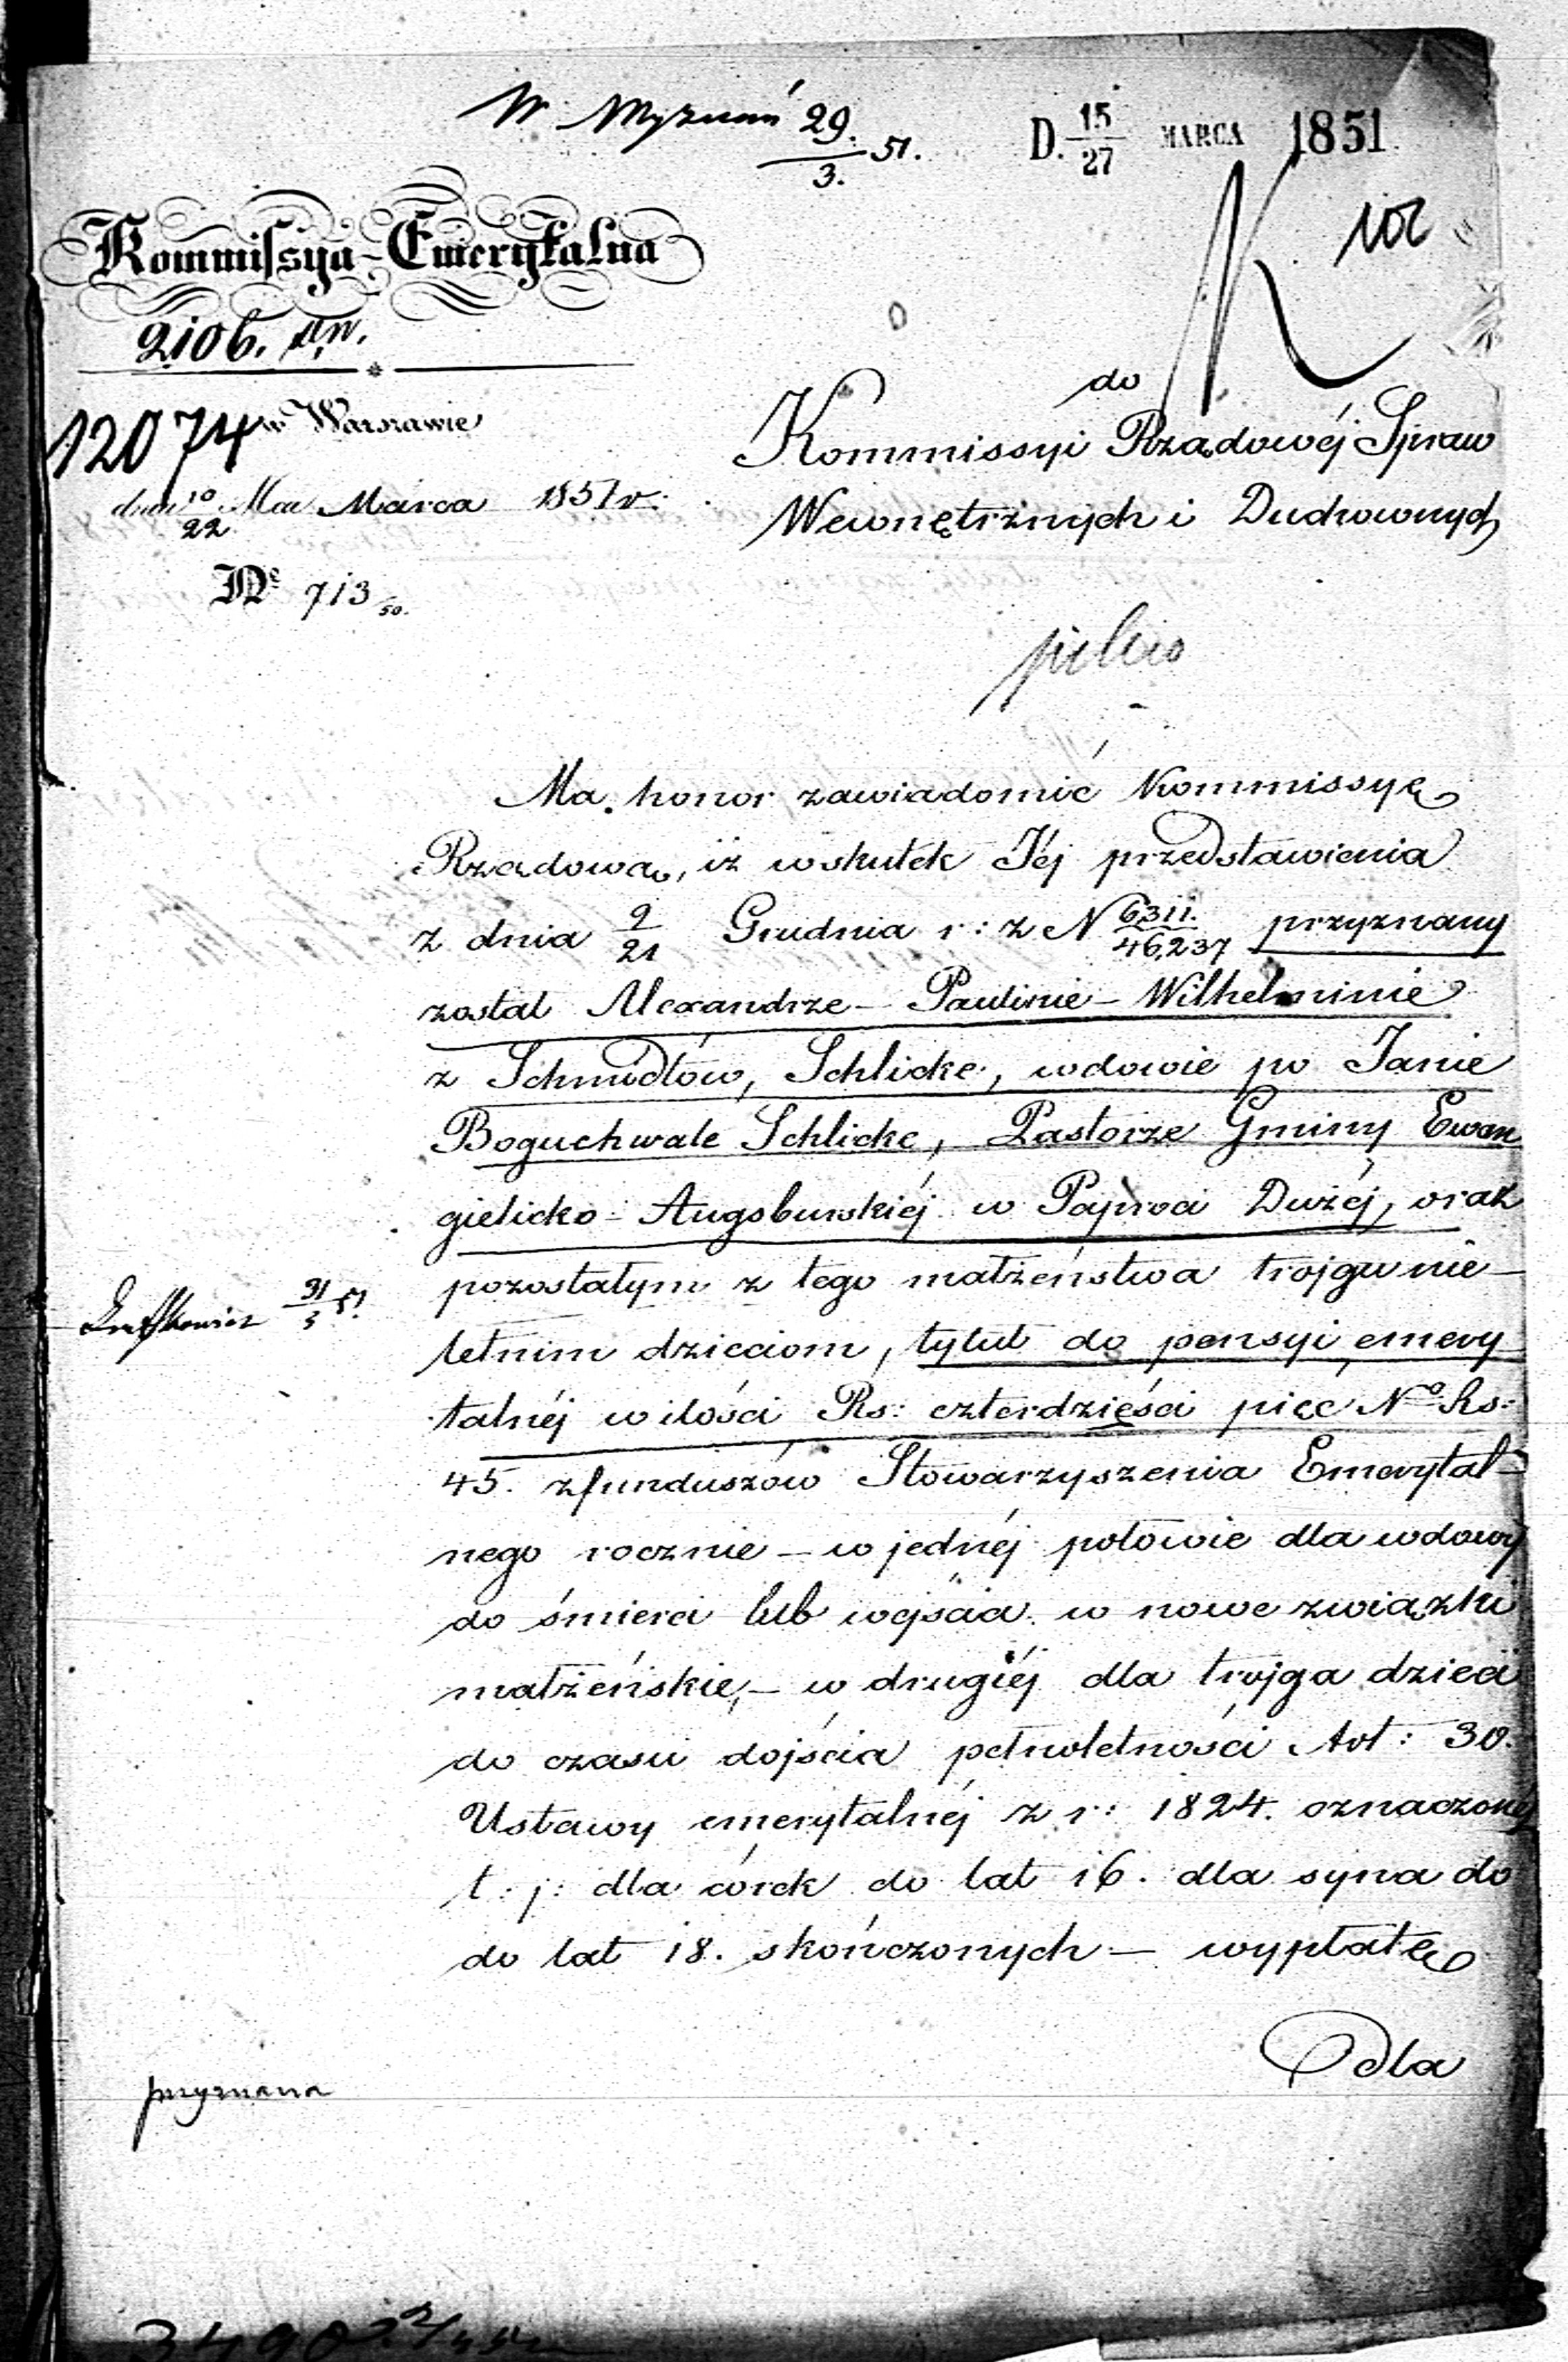 W. Wyznań 29/3. 51.
D. 15/27 MARCA 1851.
102
Kommissya-Emerytalna
2106.
12074
w Warszawie
dnia 10/22 Marca 1851 r.
No 713/50.
do
Kommissyi Rządowéj Spraw
Wewnętrznych i Duchownych
pilno
Ma honor zawiadomić Kommissyę
Rządową, iż wskutek Jéj przedstawienia
z dnia 9/21 Grudnia r: z N 6311./46,237 przyznany
został Alexandrze - Paulinie - Wilhelminie
z Schmidtów, Schlicke, wdowie po Janie
Boguchwale Schlicke, Pastorze Gminy Ewan
gielicko - Augsburskiéj w Paproci Dużéj, oraz
pozostałym z tego małżeństwa trojgu nie-
letnim dzieciom, tytuł do pensyi emery
talnéj w ilości Rs: czterdzieści pięc No Rs:
45. z funduszów Stowarzyszenia Emerytal-
nego rocznie - w jednéj połowie dla wdowy
do śmierci lub wejścia w nowe związki
małżeńskie, - w drugiéj dla trojga dzieci
do czasu dojścia pełnoletności Art: 30.
Ustawy emerytalnéj z r: 1824. oznaczonéj
t: j: dla córek do lat 16. dla syna do
do lat 18. skończonych - wypłatę
dla
31/3 51.
przyznana